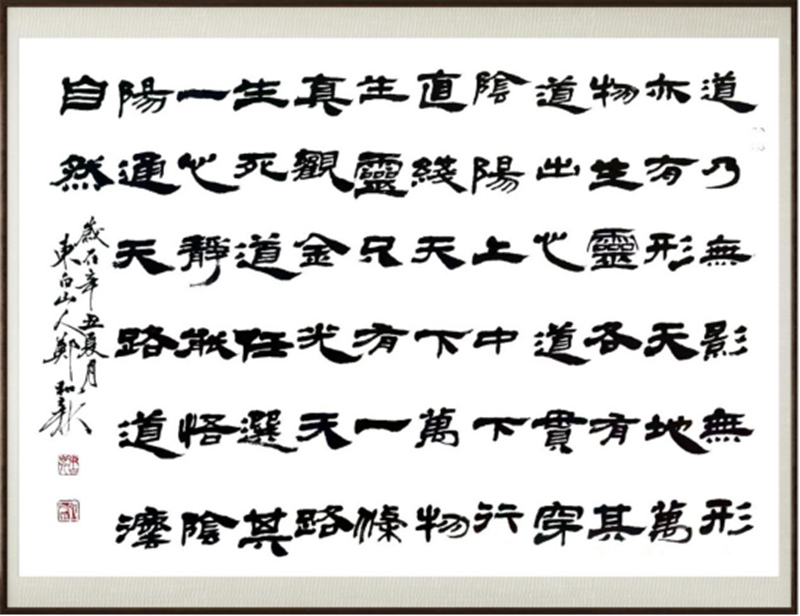 道乃無影無形
亦有形天地萬
物生靈各有其
道出心道貫穿
陰陽上中下行
直綫天下萬物
生靈只有一條
真觀金光天路
生死道任選其
一心靜能悟陰
陽通天路道灋
自然
歲在辛丑夏月
東白山人鄭和